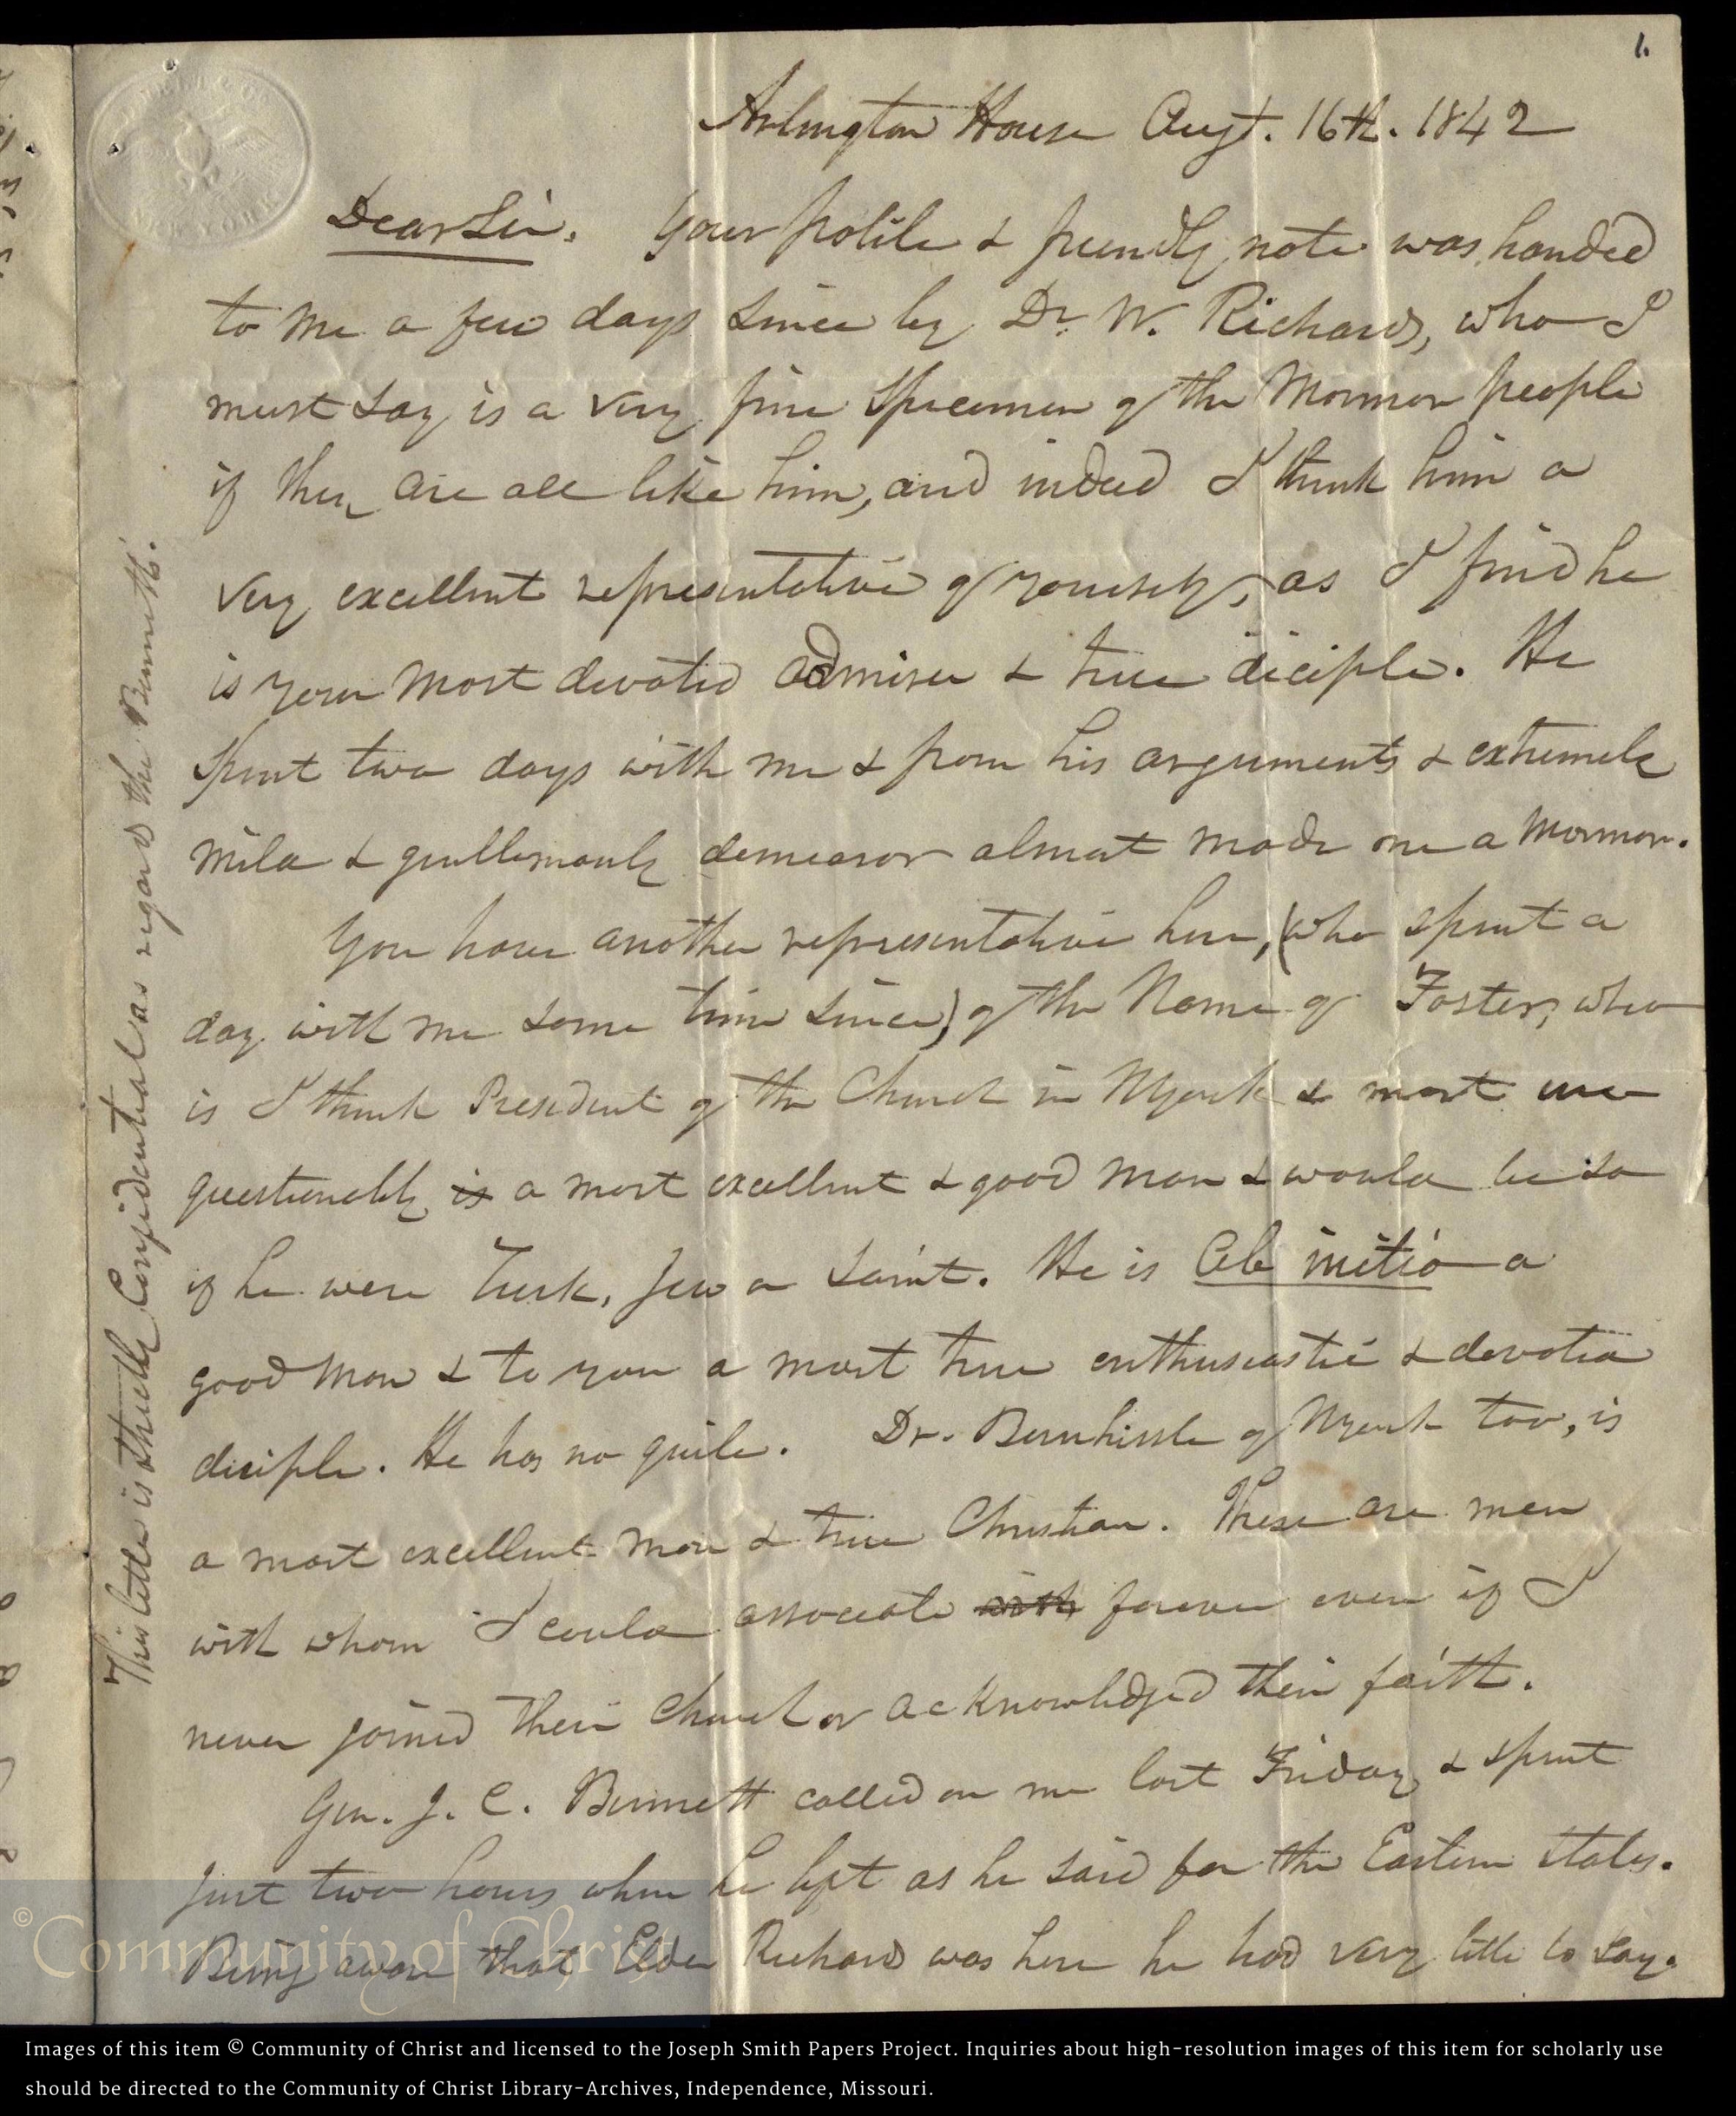 1.
Arlington House Augt. 16th. 1842
Dear Sir. Your polite & friendly note was handed
to me a few days since by Dr. W. Richards, who I
must say is a very fine specimen of the Mormon people
if they are all like him, and indeed I think him a
very excellent representative of yourself, as I find he
is your most devoted admirer & true diciple. He
spent two days with me & from his arguments & extremely
mild & gentlemanly demeanor almost made me a Mormon.
You have another representative here, (who spent a
day with me some time since) of the Name of Foster, who
is I think President of the Church in NYork & most un-
questionably is a most excellent & good man & would be so
if he were Turk, Jew or Saint. He is Ab initio a
good man & to you a most true enthusiastic & devoted
diciple. He has no guile. Dr. Bernhissle of NYork too, is
a most excellent man & true Christian. These are men
with whom I could associate with forever even if I
never joined their Church or acknowledged their faith.
Gen. J. C. Bennett called on me last Friday & spent
just two hours when he left as he said for the Eastern States.
Being aware that Elder Richards was here he had very little to say.
This letter is strictly Confidential as regards the Bennetts.
NEW YORK
© Community of Christ
Images of this item © Community of Christ and licensed to the Joseph Smith Papers Project. Inquiries about high-resolution images of this item for scholarly use
should be directed to the Community of Christ Library-Archives, Independence, Missouri.